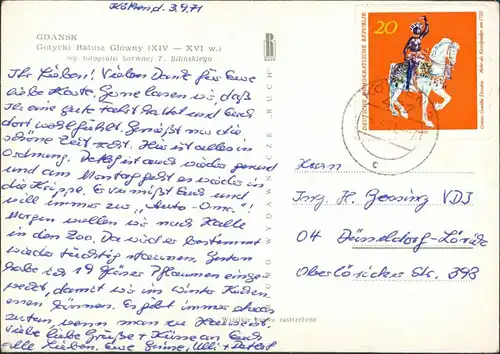 Köthen d. 3.9.71
GDAŃSK
Gotycki Ratusz Główny (XIV — XVI w.)
wg fotografii barwnej T. Bilińskiego
Ihr Lieben! Vielen Dank für Eure
liebe Karte. Gerne lasen wir daß
Ihr eine gute Fahrt hattet und Euch
dort wohl fühlt. Genießt nur die
schöne Zeit recht. Hier ist alles in
Ordnung. Detlef ist auch wieder gesund
und am Montag geht es wieder in
die Krippe. Er vermißt Euch und
will immer zu „Auto-Oma"!
Morgen wollen wir nach Halle
in den Zoo. Da wird er bestimmt
wieder tüchtig staunen. Gestern
habe ich 19 Gläser Pflaumen einge-
weckt, damit wir im Winter Kuchen
essen können. Es gibt immer etwas
zu tun, wenn man zu Hause ist.
Viele liebe Grüße + Küsse an Euch
alle Lieben. Eure Ulli + Detlef
RUCH
Wszelkie prawa zastrzeżone
20
DEUTSCHE DEMOKRATISCHE REPUBLIK
Grünes Gewölbe Dresden
um 1720
Herrn
Ing. H. Gensing VDI
04 Düsseldorf-Lörick
Oberlöricker Str. 398